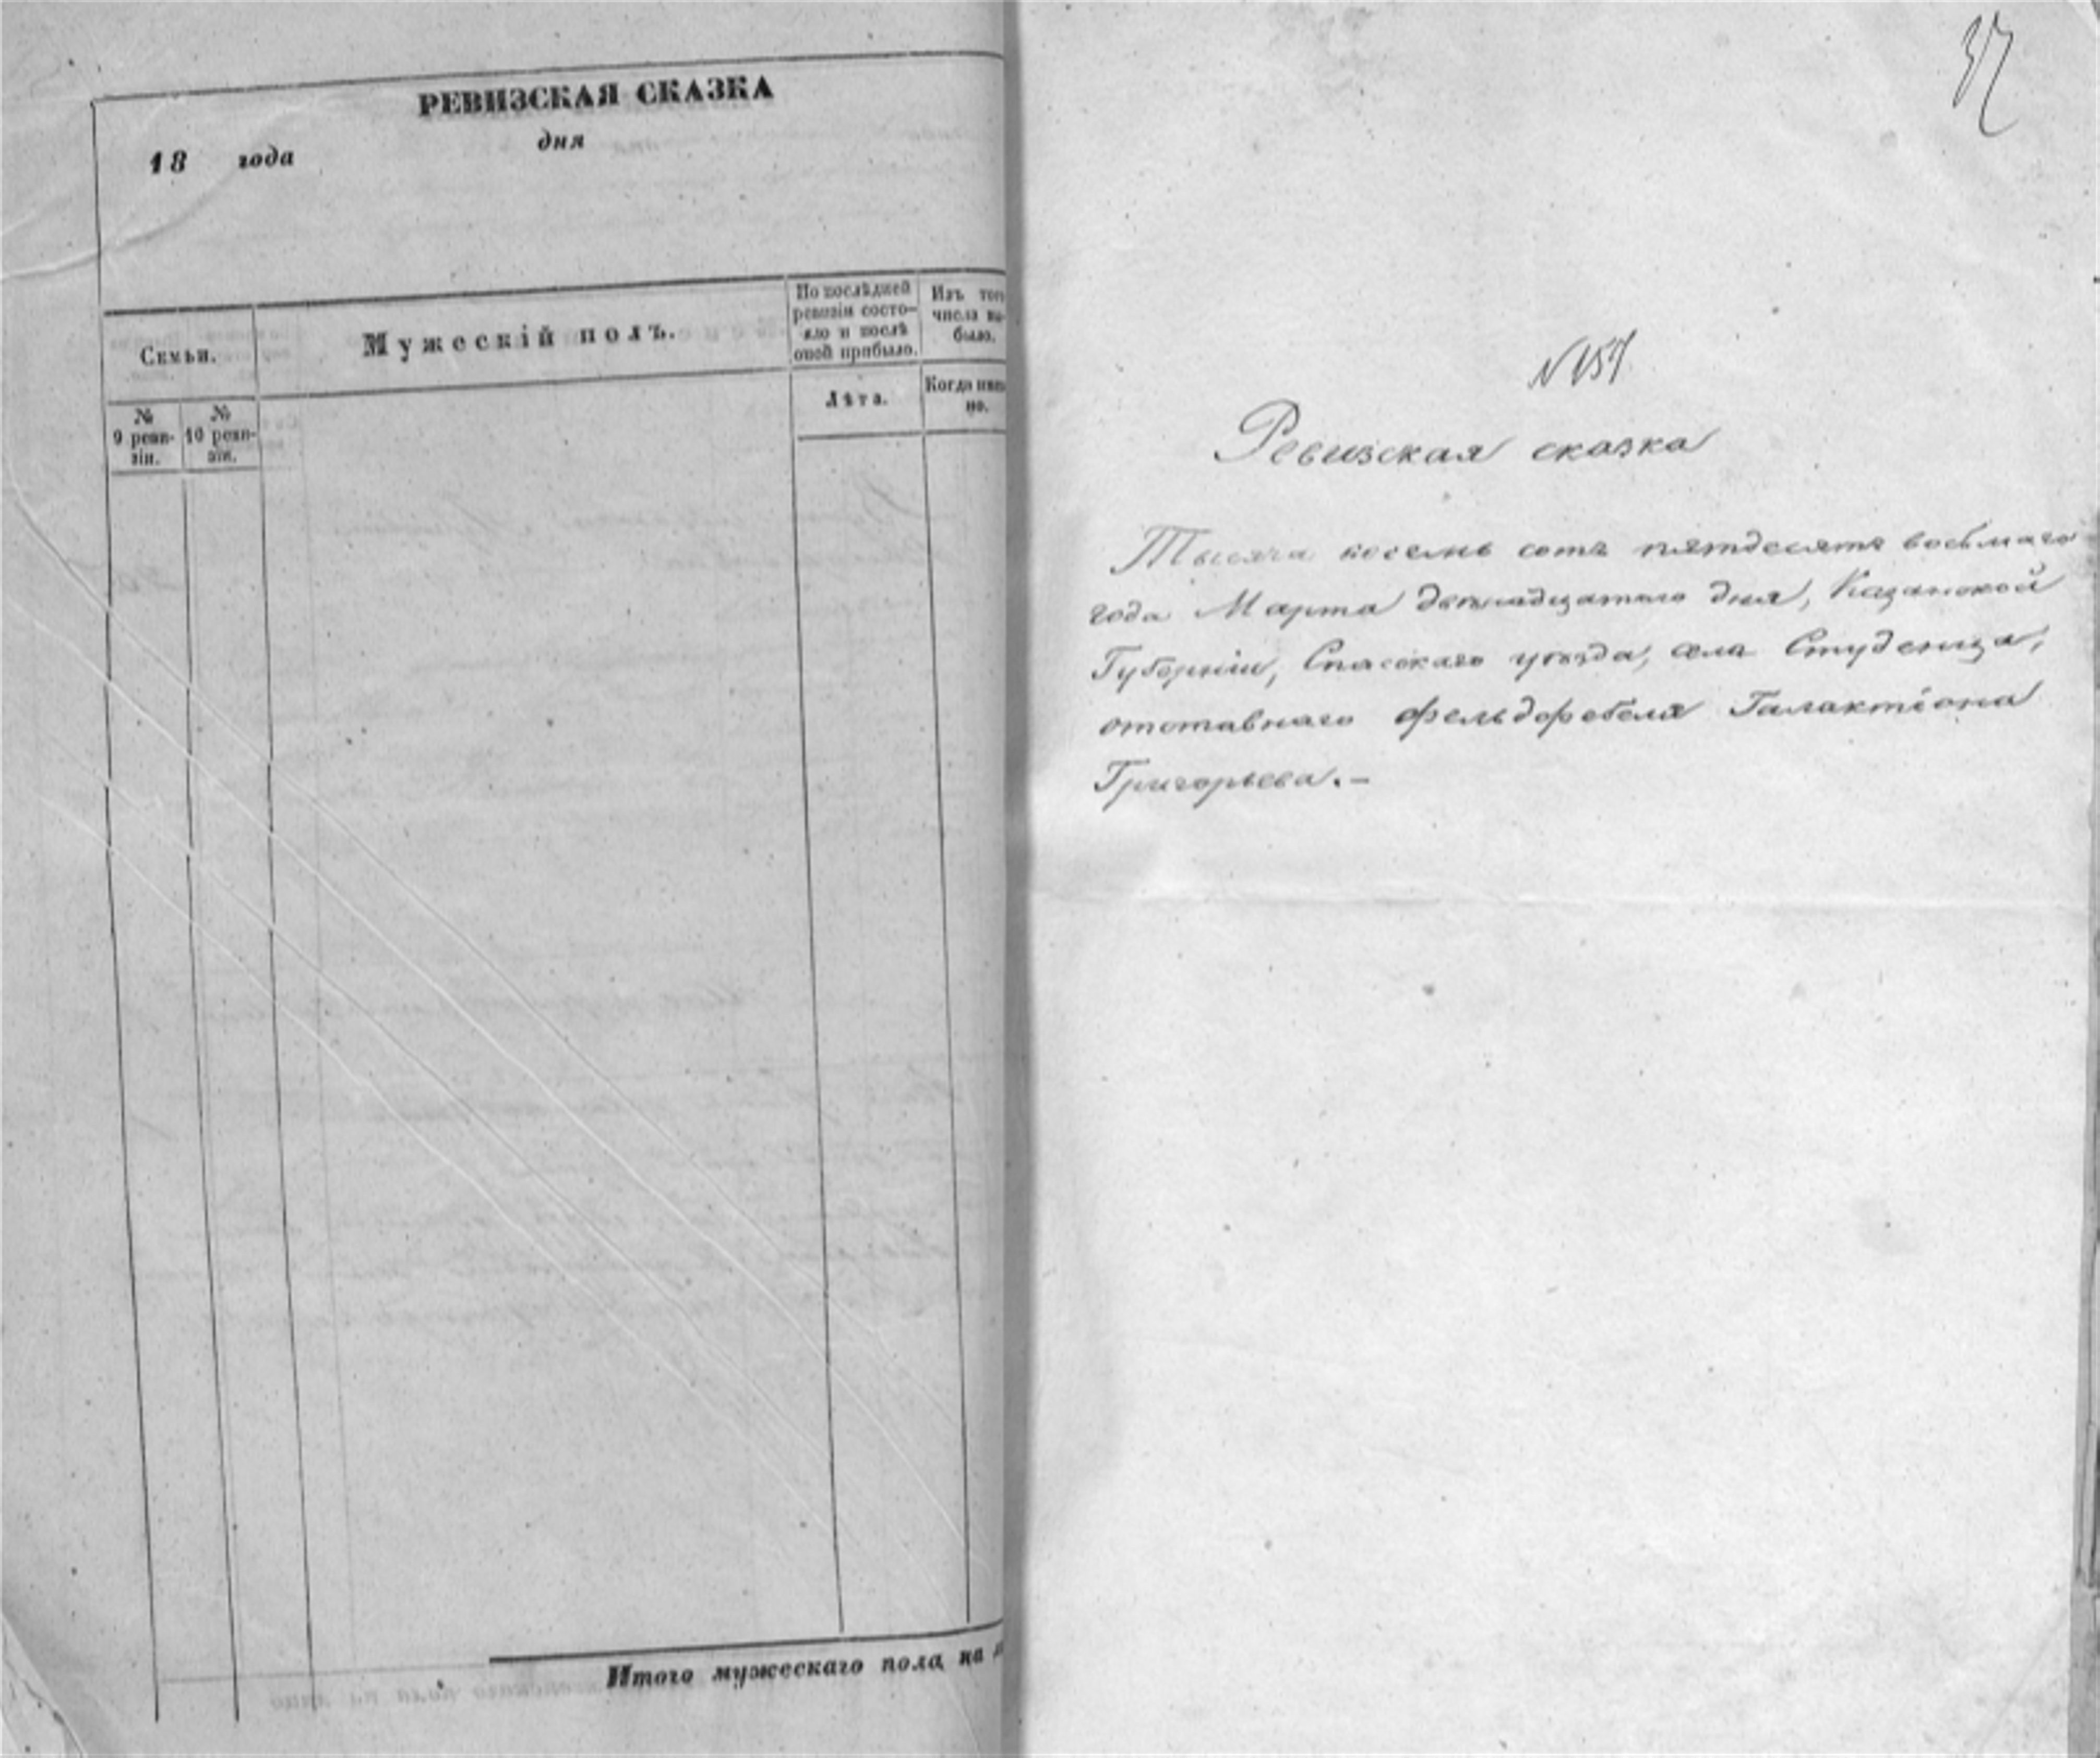 РЕВИЗСКАЯ СКАЗКА
18 года дня
Семьи.
Мужескій полъ.
По послѣдней
ревизіи состо-
яло и послѣ
оной прибыло.
Изъ того
числа вы-
было.
№
9 реви-
зіи.
№
10 реви-
зіи.
Лѣта.
Когда имен-
но.
Итого мужескаго пола на
37
№ 157
Ревизская сказка
Тысяча восемь сотъ пятдесятъ восьмаго
года Марта двенадцатого дня, Казанской
Губерніи, Спасскаго уѣзда, села Студенца,
отставнаго фельдфебеля Галактіона
Григорьева. –